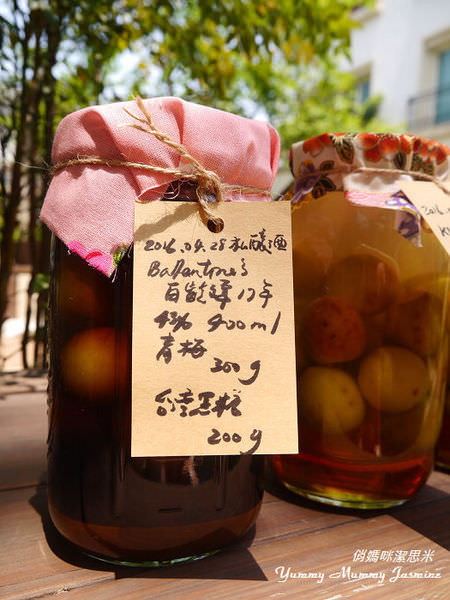 2016.04.28 私釀酒
Ballantine's
百齡罈17年
43% 400ml
青梅
300g
台糖黑糖
200g
2016.
俏媽咪潔思米
Yummy Mummy Jasmine